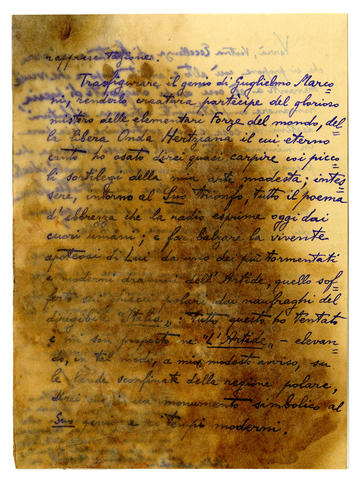 rappresentazione.
Trasfigurare il genio di Guglielmo Marco-
ni, renderlo creatura partecipe del glorioso
mistero delle elementari Forze del mondo, del-
la libera Onda Hertziana il cui eterno
canto ho osato direi quasi carpire coi picco-
li sortilegi della mia arte modesta; intes-
sere, intorno al Suo trionfo, tutto il poema
d'ebbrezza che la radio esprime oggi dai
cuori umani; e far balzare la vivente
apoteosi di Lui da uno dei più tormentati
e moderni drammi dell'Artide, quello sof-
ferto sui ghiacci polari dai naufraghi del
dirigibile "Italia": tutto questo ho tentato
e mi son proposto ne "L'Artide" - elevan-
do, in tal modo, a mio modesto avviso, su
le lande sconfinate della regione polare,
direi un monumento simbolico al
Suo genio e ai tempi moderni.